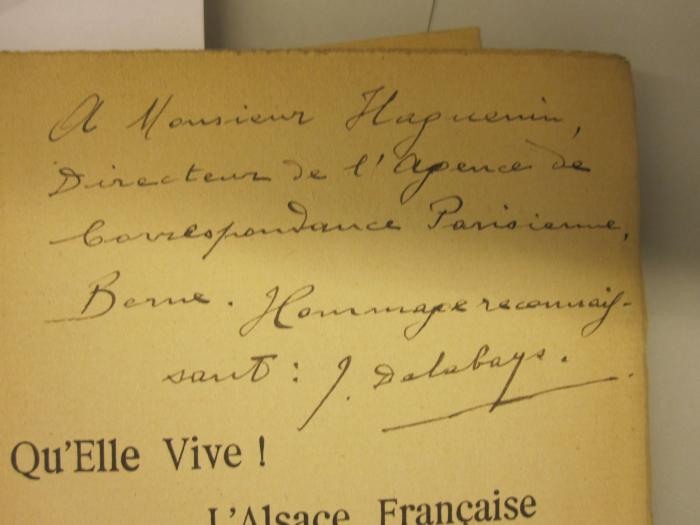 A Monsieur Haguenin,
Directeur de l'Agence de
Correspondance Parisienne,
Berne. Hommage reconnais-
sant : J. Delabays.
Qu'Elle Vive !
L'Alsace Française